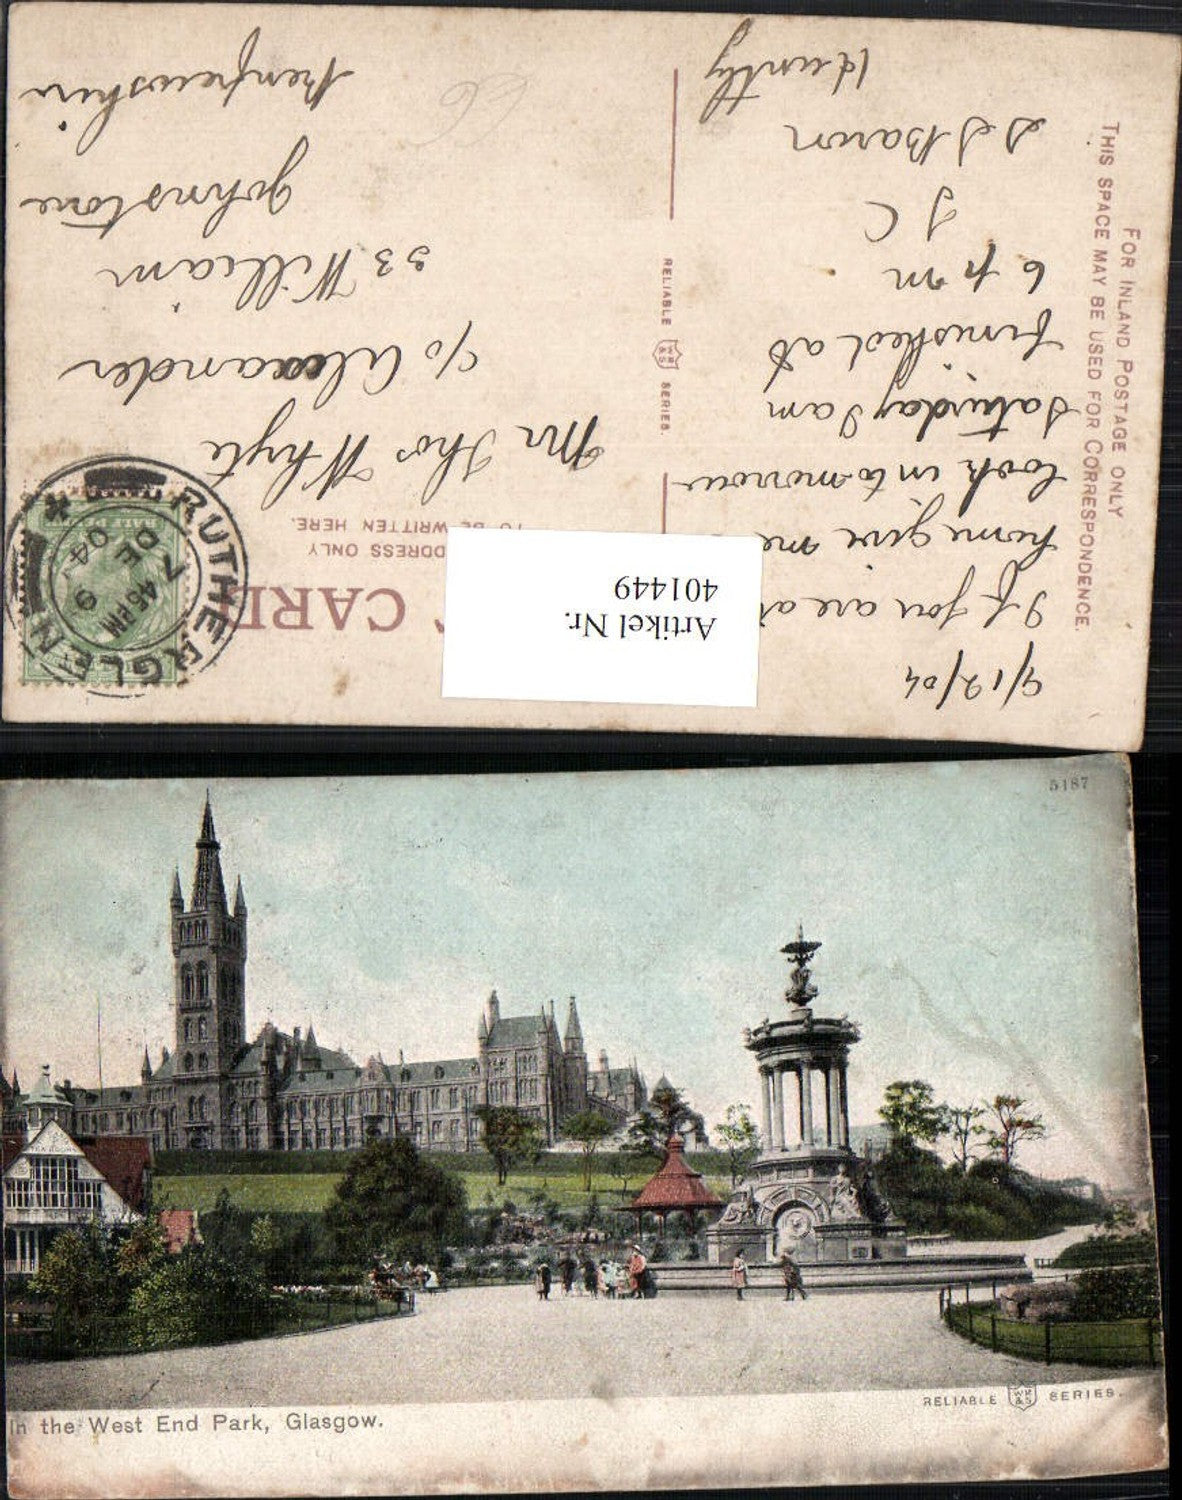 FOR INLAND POSTAGE ONLY
THIS SPACE MAY BE USED FOR CORRESPONDENCE.
9/12/04
If you are at
home give me
look in to-morrow
Saturday I am
finished at
6 pm
J C
S S Baron
Huntly
RELIABLE WR&S SERIES.
CARD
ADDRESS ONLY
TO BE WRITTEN HERE.
Mr Thos Whyte
c/o Alexander
33 William
Johnstone
Renfrewshire
66
RUTHERGLEN
7 45 PM
DE 9
04
HALF PENNY
Artikel Nr.
401449
5187
In the West End Park, Glasgow.
RELIABLE WR&S SERIES.